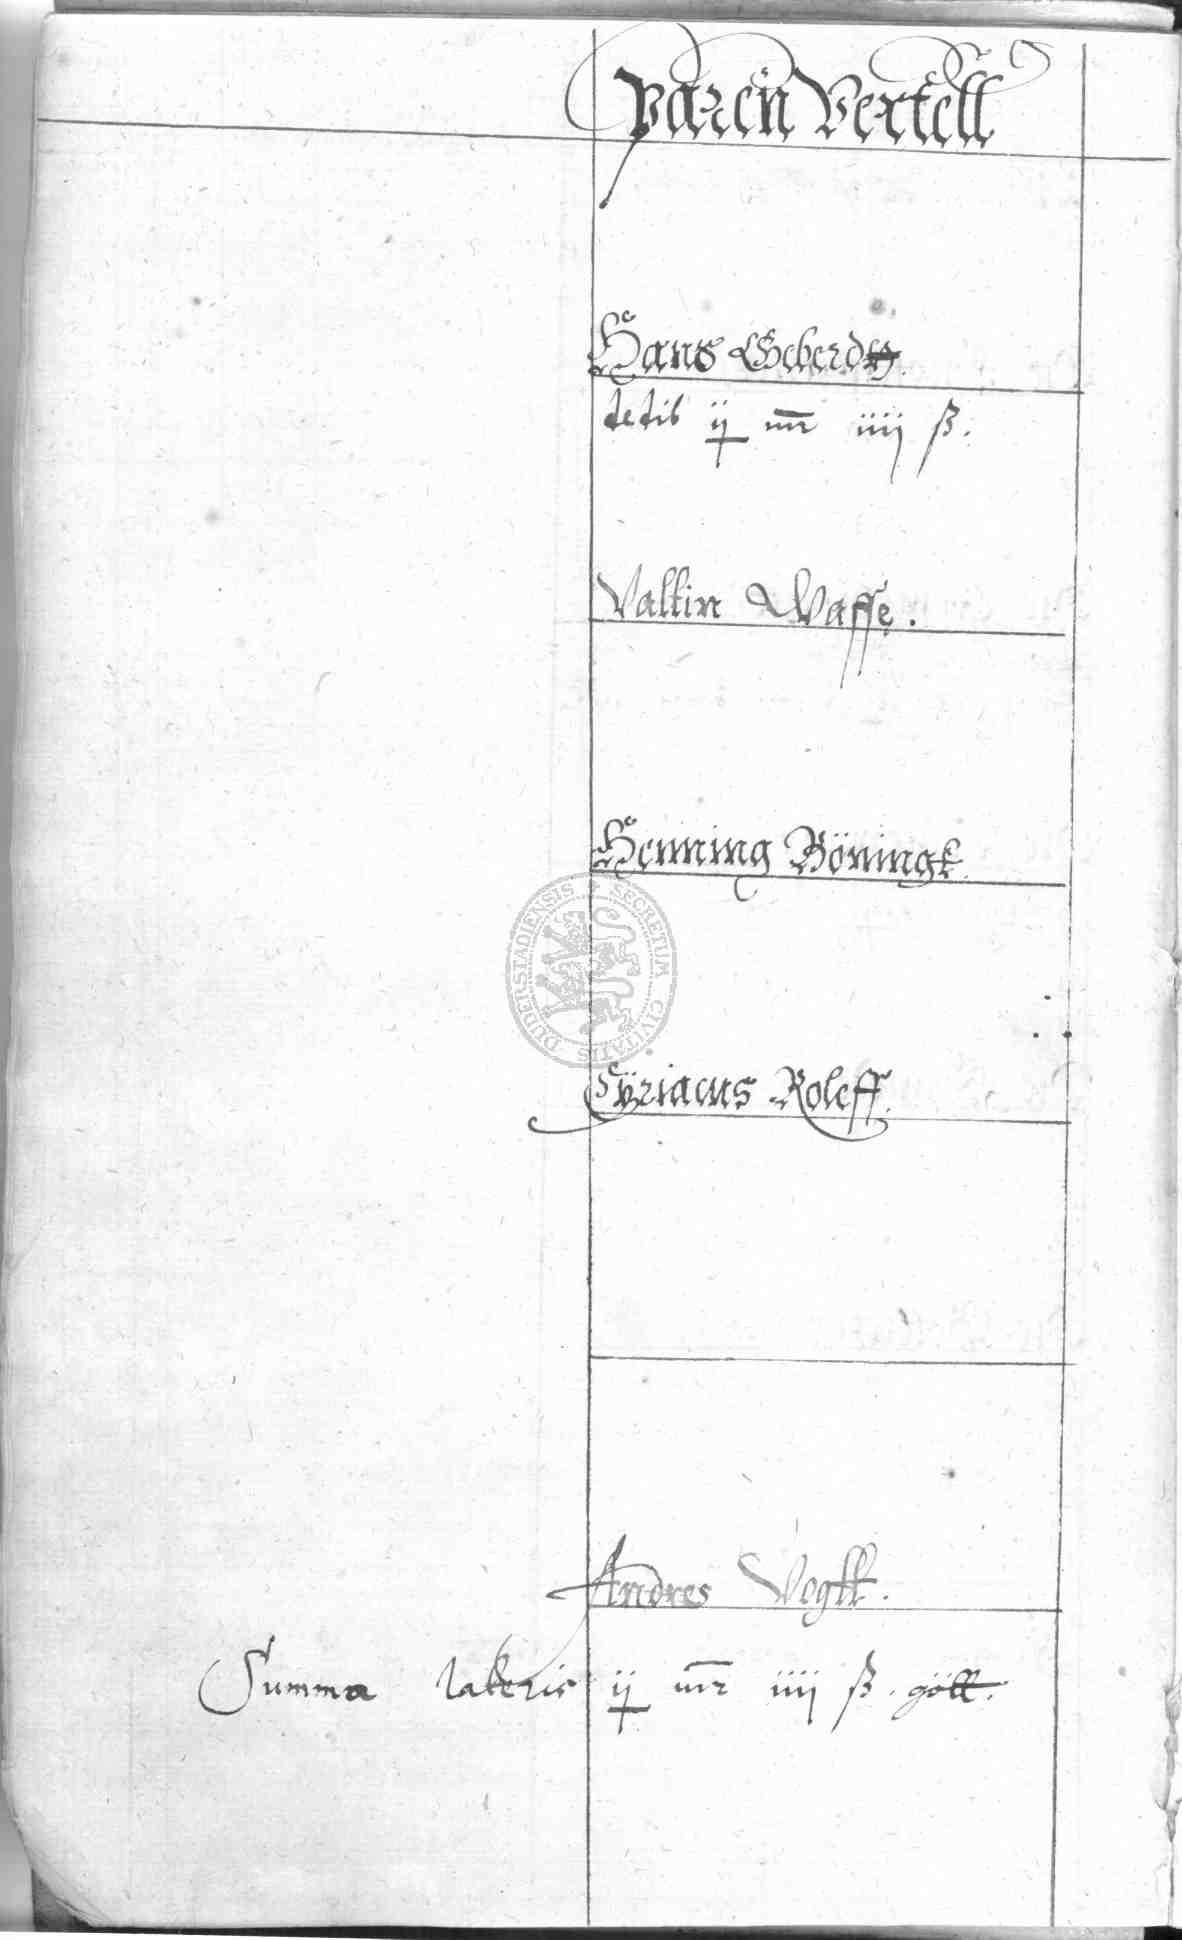 Paren Vertell
Hans Geberdt
dedit ij mr iiij ß.
Valtin Wasse.
Henning Böningk.
SECRETUM CIVITATIS DUDERSTADIENSIS
Cÿriacus Roleff.
Andres Vogtt.
Summa lateris ij mr iiij ß. gött.